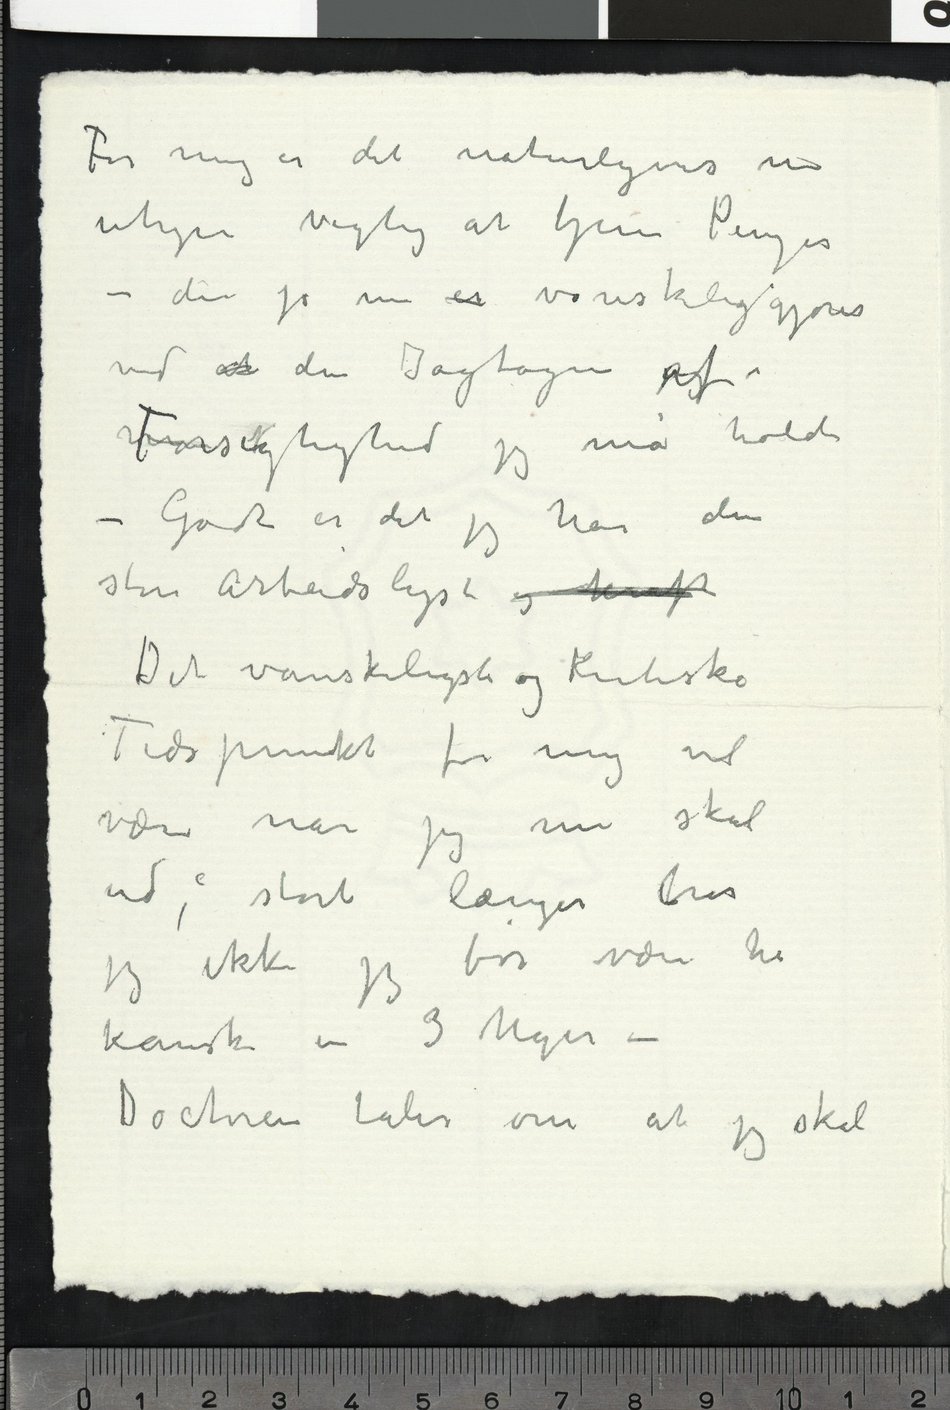 For mig er det naturligvis nu
uhyre vigtig at tjene Penger
– der jo nu er vanskeliggjøres
ved at den Iagtagen af
Forsigtighed jeg må holde
– Godt er det jeg har den
store Arbeidslyst og kraft
Det vanskeligste og Kritiske
Tidspunkt for mig vil
være når jeg nu skal
ud, stort længer tror
jeg ikke jeg bør være her
kanske en 3 Uger –
Doctoren taler om at jeg skal